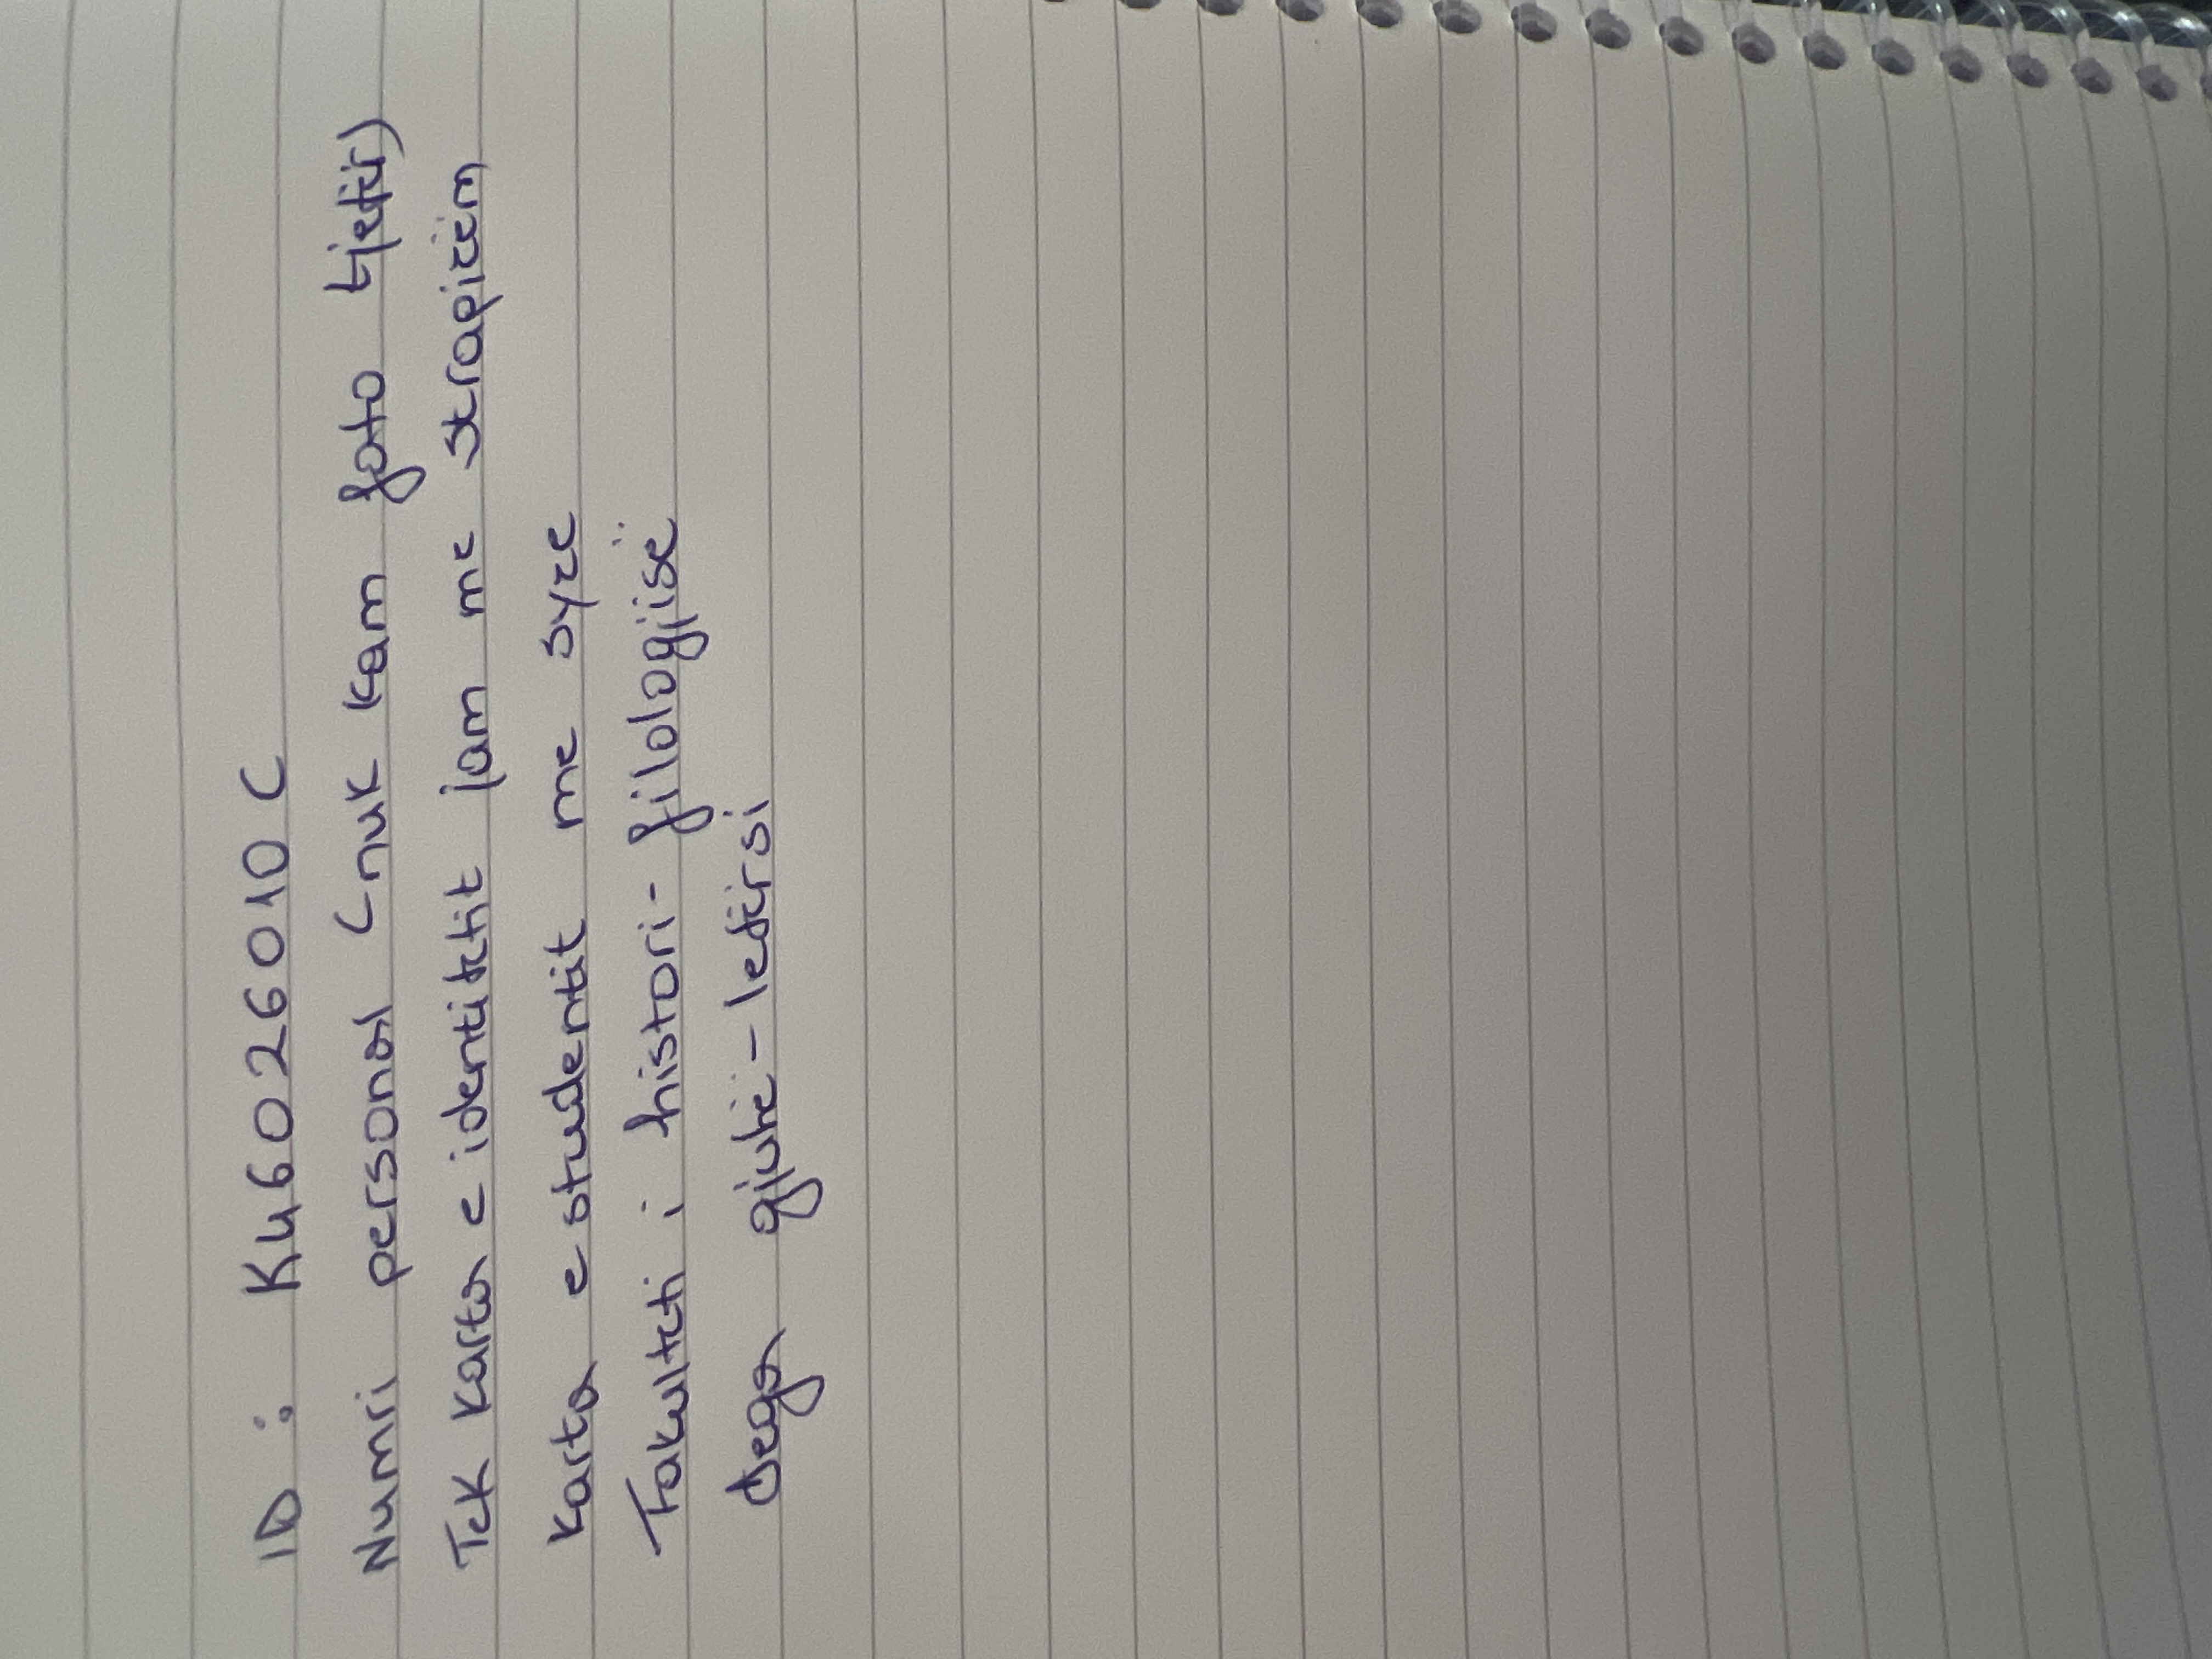 ID : K46026010C
Numri personal (nuk kam foto tjetër)
Tek karta e identitetit jam me strapicëm
Karta e studentit me syze
Fakulteti i histori-filologjisë
Dega gjuhë-letërsi